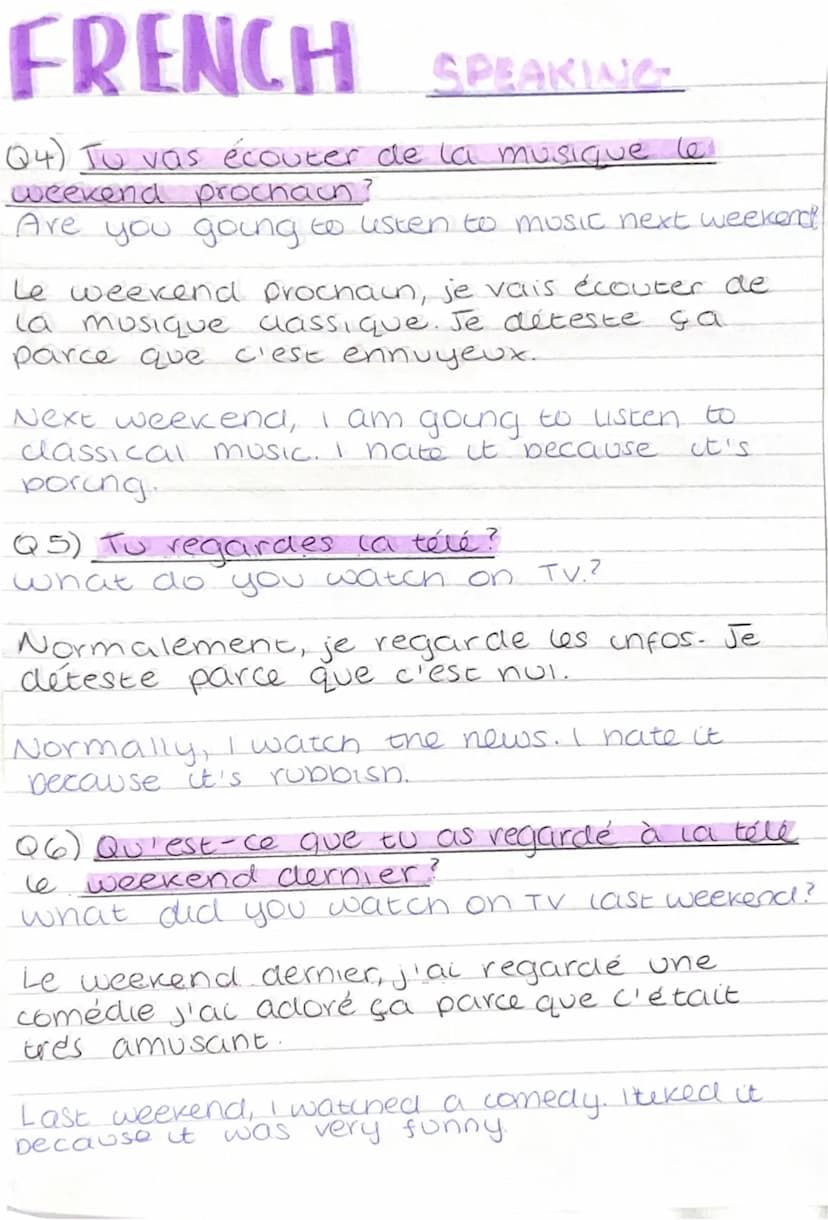 FRENCH SPEAKING
Q4) Tu vas écouter de la musique le
weekend prochain?
Are you going to listen to music next weekend?
Le weekend prochain, je vais écouter de
la musique classique. Je déteste ça
parce que c'est ennuyeux.
Next weekend, I am going to listen to
classical music. I hate it because it's
boring.
Q5) Tu regardes la télé?
What do you watch on TV?
Normalement, je regarde les infos. Je
déteste parce que c'est nul.
Normally, I watch the news. I hate it
because it's rubbish.
Q6) Qu'est-ce que tu as regardé à la télé
le weekend dernier?
What did you watch on TV last weekend?
Le weekend dernier, j'ai regardé une
comédie j'ai adoré ça parce que c'était
trés amusant.
Last weekend, I watched a comedy. I liked it
because it was very funny.